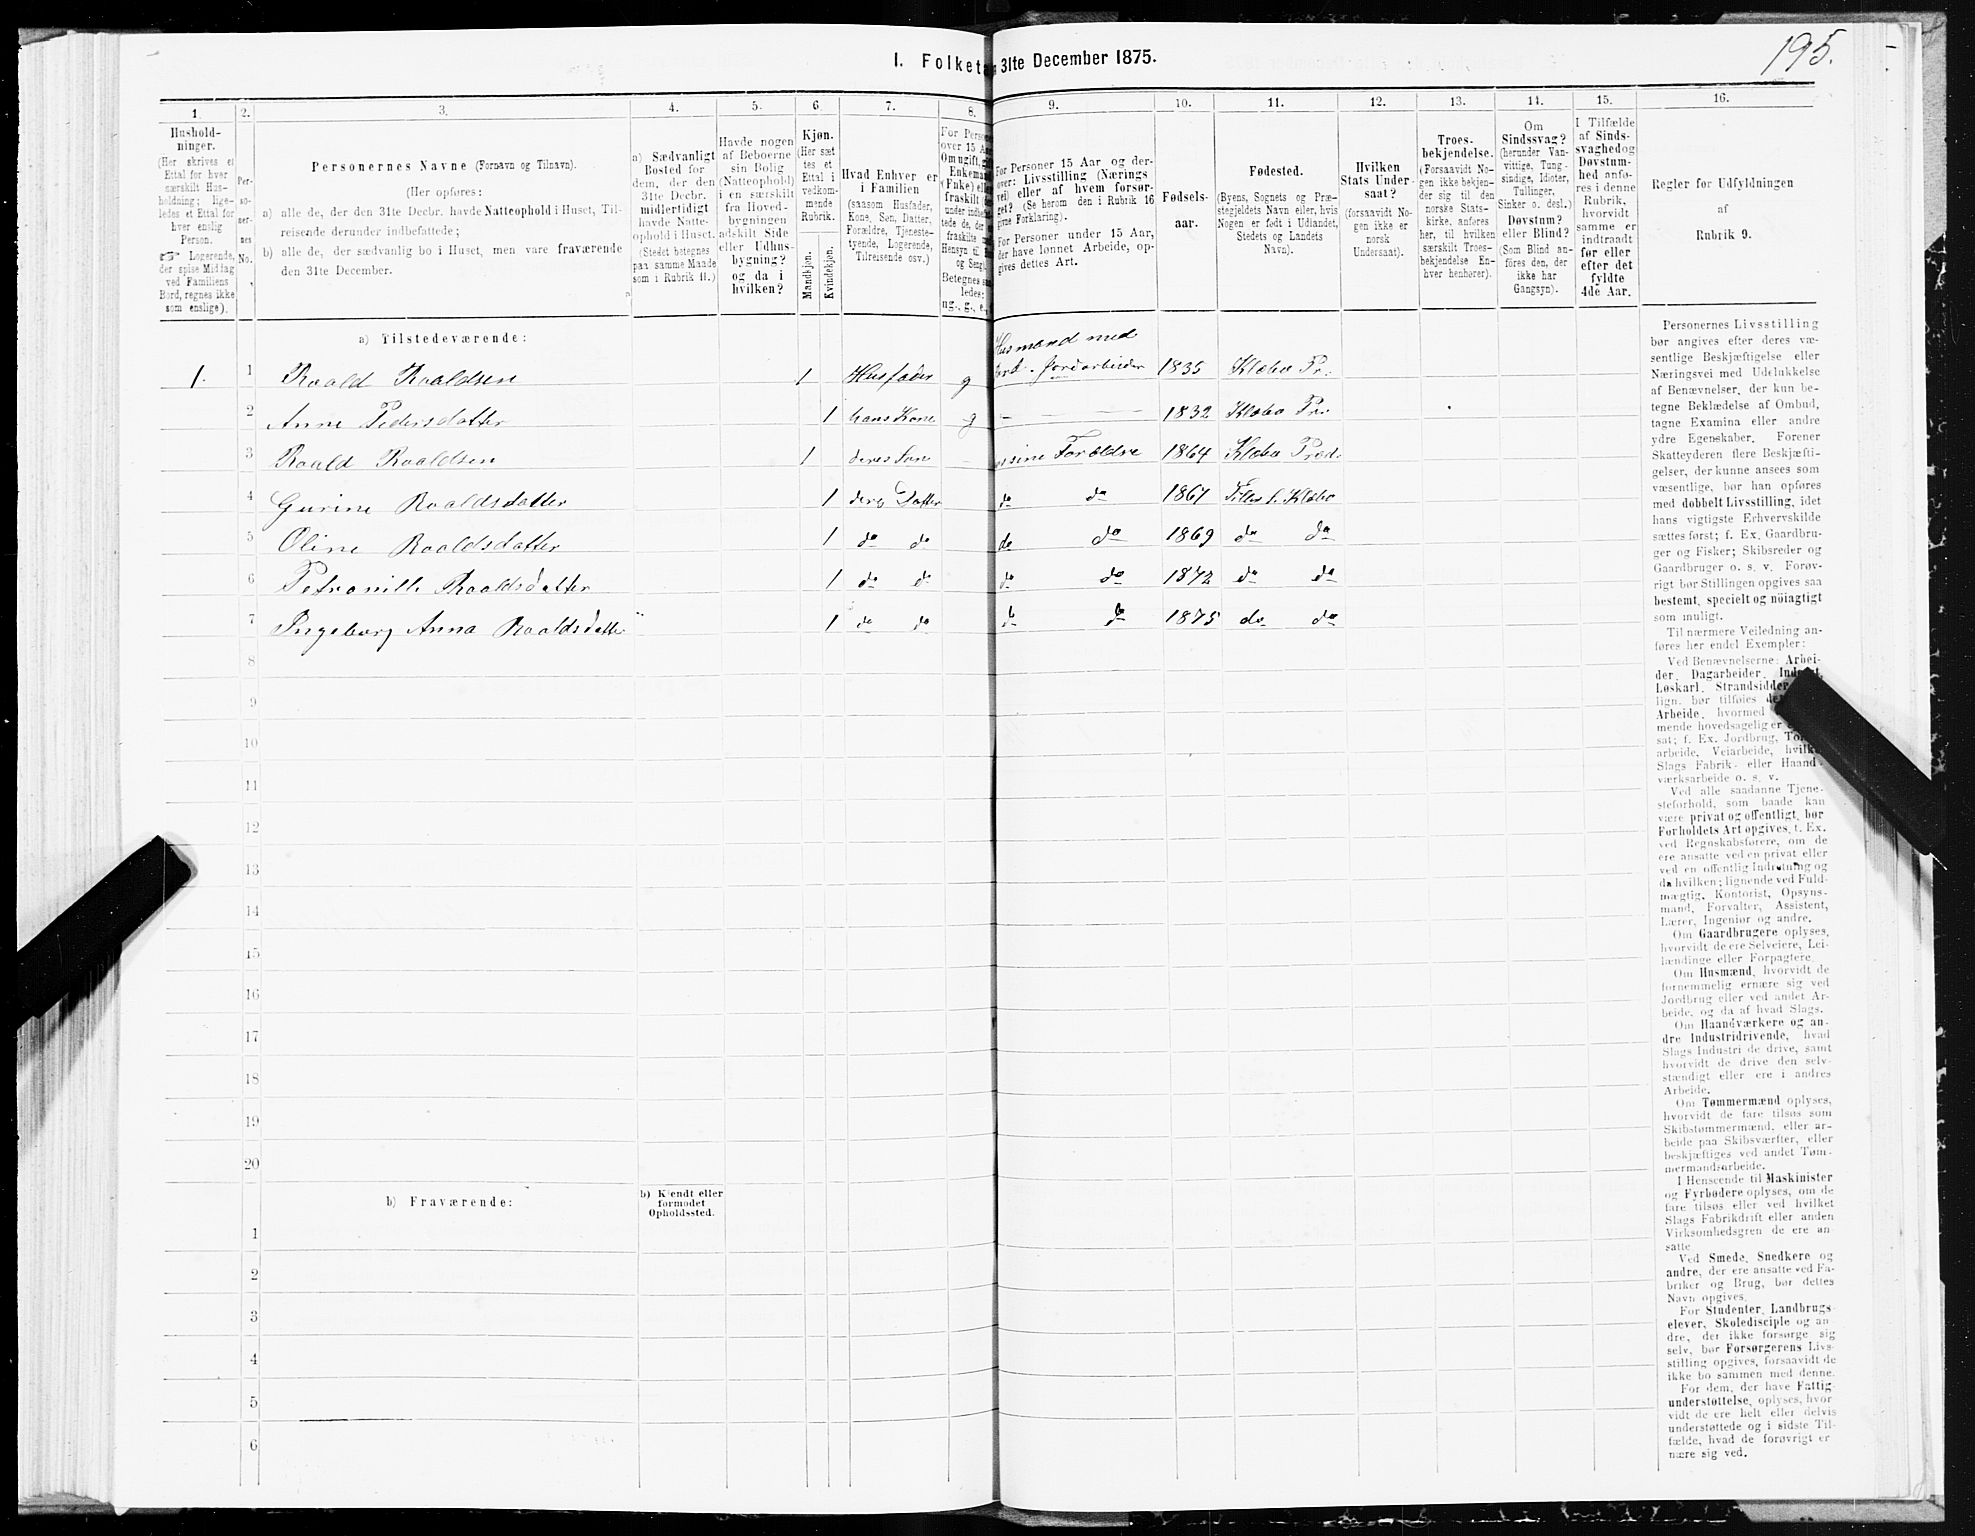 195.
I. Folket 31te December 1875.
1. 2. 3. 4. 5. 6. 7. 8. 9. 10. 11. 12. 13. 14. 15. 16.
Hushold-
ninger.
(Her skrives et
Ettal for hver
særskilt Hus-
holdning; lige-
ledes et Ettal for
hver enslig
Person.
☞ Logerende,
der spise Middag
ved Familiens
Bord, regnes ikke
som enslige).
Per-
so-
ner-
nes
No.
Personernes Navne (Fornavn og Tilnavn).
(Her opføres:
a) alle de, der den 31te Decbr. havde Natteophold i Huset, Til-
reisende derunder indbefattede;
b) alle de, der sædvanlig bo i Huset, men vare fraværende
den 31te December.
a) Sædvanligt
Bosted for
dem, der den
31te Decbr.
midlertidigt
havde Natte-
ophold i Huset.
(Stedet betegnes
paa samme Maade
som i Rubrik 11.)
Havde nogen
af Beboerne
sin Bolig
(Natteophold)
i en særskilt
fra Hoved-
bygningen
adskilt Side
eller Udhus-
bygning?
og da i
hvilken?
Kjøn.
(Her sæt
tes et
Ettal i
vedkom-
mende
Rubrik.
Mandkjøn.
Kvindekjøn.
Hvad Enhver er
i Familien
(saasom Husfader,
Kone, Søn, Datter,
Forældre, Tjeneste-
tyende, Logerende,
Tilreisende osv.)
For Person
over 15 Aa
Om ugift, gi
Enkemand
(Enke) elle
fraskilt
For Personer 15 Aar og der-
over: Livsstilling (Nærings
vei) eller af hvem forsør-
get? (Se herom den i Rubrik 16
givne Forklaring).
For Personer under 15 Aar,
der have lønnet Arbeide, op-
gives dettes Art.
Fødsels-
aar.
Fødested.
(Byens, Sognets og Præ-
stegjeldets Navn eller, hvis
Nogen er født i Udlandet,
Stedets og Landets
Navn).
Hvilken
Stats Under-
saat?
(forsaavidt No-
gen ikke er
norsk
Undersaat).
Troes-
bekjendelse.
(Forsaavidt No-
gen ikke bekjen-
der sig til den
norske Stats-
kirke, anføres
her, til hvilken
særskilt Troes-
bekjendelse En-
hver henhører).
Om
Sindssvag?
(herunder Van-
vittige, Tung-
sindige, Idioter,
Tullinger,
Sinker o. desl.)
Døvstum?
eller Blind?
(Som Blind an-
føres den, der
ikke har
Gangsyn).
I Tilfælde
af Sinds-
svaghed og
Døvstum-
hed anfø-
res i denne
Rubrik,
hvorvidt
samme er
indtraadt
før eller
efter det
fyldte
4de Aar.
Regler for Udfyldningen
af
Rubrik 9.
a) Tilstedeværende:
Husmand med
1. 1 Roald Roaldsen 1 Husfader g Jord. Jordarbeider 1835 Klæbo Pr.
2 Anne Pedersdatter 1 hans Kone g — 1832 Klæbo Pr.
3 Roald Roaldsen 1 deres Søn — sine Forældre 1864 Klæbo Præd.
4 Gurine Roaldsdatter 1 deres Datter do do 1867 Tiller S. Klæbo
5 Oline Roaldsdatter 1 do do do do 1869 do do
6 Petronille Roaldsdatter 1 do do do do 1872 do do
7 Ingeborg Anna Roaldsdatter 1 do do do do 1875 do do
8
9
10
11
12
13
14
15
16
17
18
19
20
b) Fraværende:
b) Kjendt eller
formodet
Opholdssted.
1
2
3
4
5
6
Personernes Livsstilling
bør angives efter deres væ-
sentlige Beskjæftigelse eller
Næringsvei med Udelukkelse
af Benævnelser, der kun be-
tegne Beklædelse af Ombud,
tagne Examina eller andre
ydre Egenskaber. Forener
Skatteyderen flere Beskjæfti-
gelser, der kunne ansees som
væsentlige, bør han opføres
med dobbelt Livsstilling, idet
hans vigtigste Erhvervskilde
sættes først; f. Ex. Gaardbru-
ger og Fisker; Skibsreder og
Gaardbruger o. s. v. Forøv-
rigt bør Stillingen opgives saa
bestemt, specielt og nöiagtigt
som muligt.
Til nærmere Veiledning an-
føres her endel Exempler:
Ved Benævnelserne: Arbei-
der, Dagarbeider, Inderst,
Løskarl, Strandsidder
lign. bør tilføies
Arbeide, hvormed
mende hovedsagelig er
sat; f. Ex. Jordbrug, Tom
arbeide, Veiarbeide, hvilke
Slags Fabrik- eller Haand-
værksarbeide o. s. v.
Ved alle saadanne Tjene-
steforhold, som baade kan
være privat og offentligt, bør
Forholdets Art opgives, t. Ex.
ved Regnskabsførere, om de
ere ansatte ved en privat eller
ved en offentlig Indretning og
da hvilken; lignende ved Fuld-
mægtig, Kontorist, Opsyns-
mand, Forvalter, Assistent,
Lærer, Ingeniør og andre.
Om Gaardbrugere oplyses,
hvorvidt de ere Selveiere, Lei-
lændinge eller Forpagtere.
Om Husmænd, hvorvidt de
fornemmelig ernære sig ved
Jordbrug eller ved andet Ar-
beide, og da af hvad Slags.
Om Haandværkere og an-
dre Industridrivende, hvad
Slags Industri de drive, samt
hvorvidt de drive den selv-
stændigt eller ere i andres
Arbeide.
Om Tømmermænd oplyses,
hvorvidt de fare tilsøs som
Skibstømmermænd, eller ar-
beide paa Skibsværfter, eller
beskjæftiges ved andet Tøm-
mermandsarbeide.
I Henseende til Maskinister
og Fyrbødere oplyses, om de
fare tilsøs eller ved hvilket
Slags Fabrikdrift eller anden
Virksomhedsgren de ere an
satte
Ved Smede, Snedkere og
andre, der ere ansatte ved Fa-
briker og Brug, bør dettes
Navn opgives.
For Studenter, Landbrugs-
elever, Skoledisciple og an-
dre, der ikke forsørge sig
selv, bør Forsørgerens Livs-
stilling opgives, forsaavidt de
ikke bo sammen med denne.
For dem, der have Fattig-
understøttelse, oplyses, hvor
vidt de ere helt eller delvis
understøttede og i sidste Til-
fælde, hvad de forøvrigt er
nære sig ved.